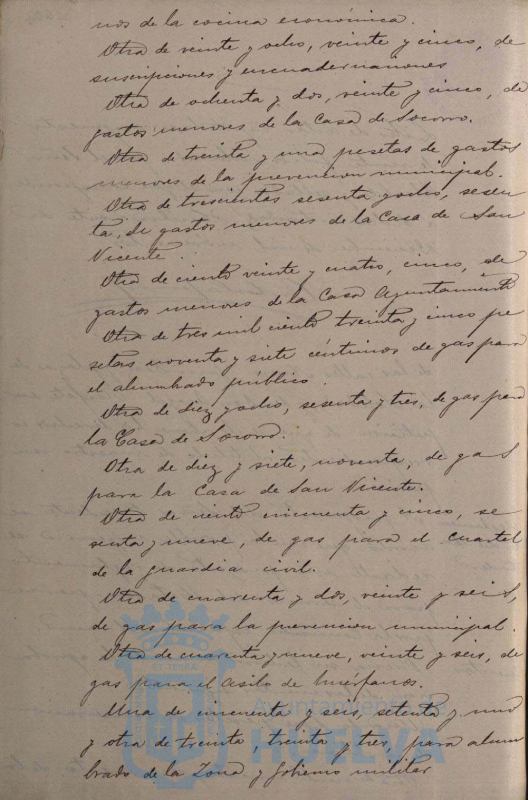 nos de la cocina económica.
Otra de veinte y ocho, veinte y cinco, de
suscripciones y encuadernaciones
Otra de ochenta y dos, veinte y cinco, de
gastos menores de la Casa de Socorro.
Otra de treinta y una pesetas de gastos
menores de la prevencion municipal.
Otra de trescientas sesenta y ocho, sesen
ta, de gastos menores de la Casa de San
Vicente.
Otra de ciento veinte y cuatro, cinco, de
gastos menores de la Casa Ayuntamiento
Otra de tres mil ciento treinta y cinco pe
setas noventa y siete céntimos de gas para
el alumbrado público.
Otra de diez y ocho, sesenta y tres, de gas para
la Casa de Socorro.
Otra de diez y siete, noventa, de gas
para la Casa de San Vicente.
Otra de ciento cincuenta y cinco, se
senta y nueve, de gas para el cuartel
de la guardia civil.
Otra de cuarenta y dos, veinte y seis,
de gas para la prevencion municipal.
Otra de cuarenta y nueve, veinte y seis, de
gas para el Asilo de huérfanos.
Una de cincuenta y seis, setenta y uno
y otra de treinta, treinta y tres, para alum
brado de la Zona y Gobierno militar
Ayuntamiento de
HUELVA